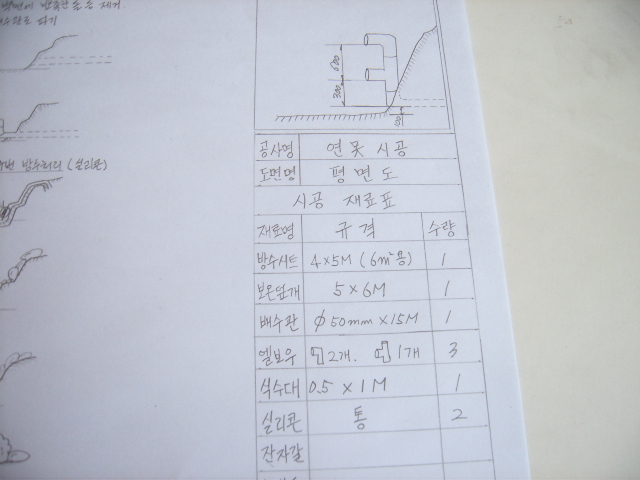 수평으로 파기
방수처리 (실리콘)
600
300
공사명 연못 시공
도면명 평면도
시공 재료표
재료명 규격 수량
방수시트 4×5M (6m²용) 1
보온덮개 5×6M 1
배수관 ϕ50mm×15M 1
엘보우 2개. 1개 3
식수대 0.5×1M 1
실리콘 통 2
잔자갈